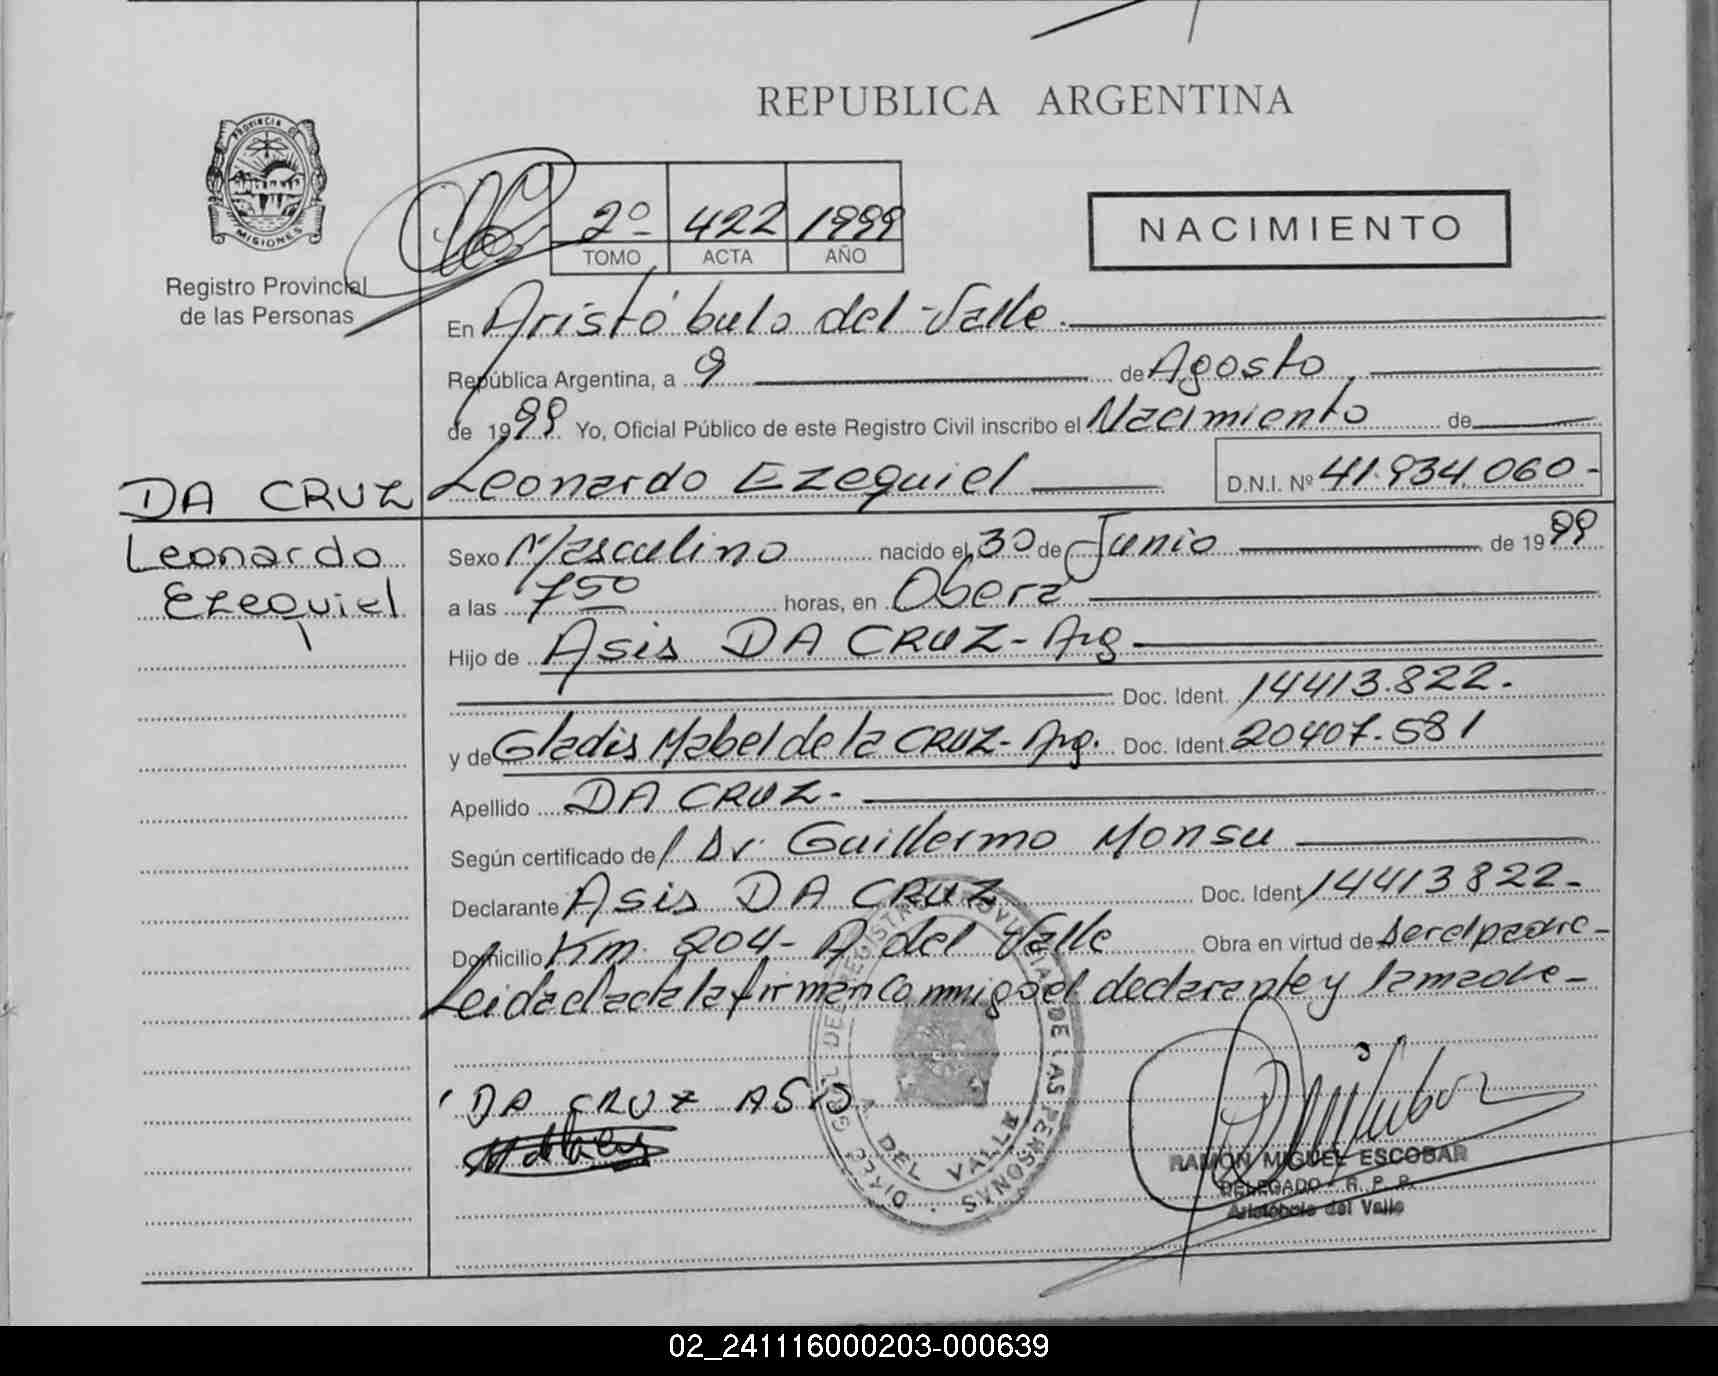 REPUBLICA ARGENTINA
PROVINCIA DE
MISIONES
Registro Provincial
de las Personas
2º 422 1999
TOMO ACTA AÑO
NACIMIENTO
En Aristóbulo del Valle.
República Argentina, a 9 de Agosto
de 1999 Yo, Oficial Público de este Registro Civil inscribo el Nacimiento de
DA CRUZ Leonardo Ezequiel D.N.I. Nº 41.934.060-
Leonardo
Ezequiel
Sexo Masculino nacido el 30 de Junio de 1999
a las 750 horas, en Oberá
Hijo de Asis DA CRUZ- Arg
Doc. Ident. 14413.822.
y de Gladis Mabel de la CRUZ- Arg. Doc. Ident. 20407.581
Apellido DA CRUZ-
Según certificado del Dr. Guillermo Monsu
Declarante Asis DA CRUZ Doc. Ident 14413822-
Domicilio Km. 204- A. del Valle Obra en virtud de ser el padre-
Leida el acta la firman conmigo el declarante y la madre-
DA CRUZ ASIS
DEL VALLE
RAMON MIGUEL ESCOBAR
DELEGADO R. P. P.
Aristóbulo del Valle
02_241116000203-000639